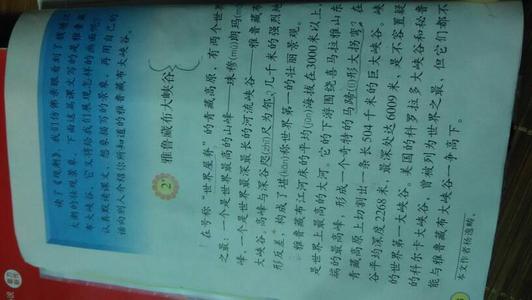 读了《观潮》，我们仿佛亲眼看到了钱塘江
大潮的壮观景象。下面这篇课文写的是雅鲁藏
布大峡谷，它又将给我们展现怎样的画面呢？
认真默读课文，想象描写的景象，再用自己的
话向别人介绍你所知道的雅鲁藏布大峡谷。
2*
雅鲁藏布大峡谷
在号称“世界屋脊”的青藏高原，有两个世界
之最：一个是世界最高的山峰——珠穆(mù)朗玛(mǎ)
峰，一个是世界最深最长的河流峡谷——雅鲁藏布
大峡谷。高峰与深谷咫(zhǐ)尺为邻，几千米的强烈地
形反差，构成了堪(kān)称世界第一的壮丽景观。
雅鲁藏布江河床的平均(jūn)海拔在3000米以上，
是世界上最高的大河。它的下游围绕喜马拉雅山东
端的最高峰，形成一个奇特的马蹄(tí)形大拐弯，在
青藏高原上切割出一条长504千米的巨大峡谷。峡
谷平均深度2268米，最深处达6009米，是不容置疑
的世界第一大峡谷。美国的科罗拉多大峡谷和秘鲁
的科尔卡大峡谷，曾被列为世界之最，但它们都不
能与雅鲁藏布大峡谷一争高下。
本文作者杨逸畴。